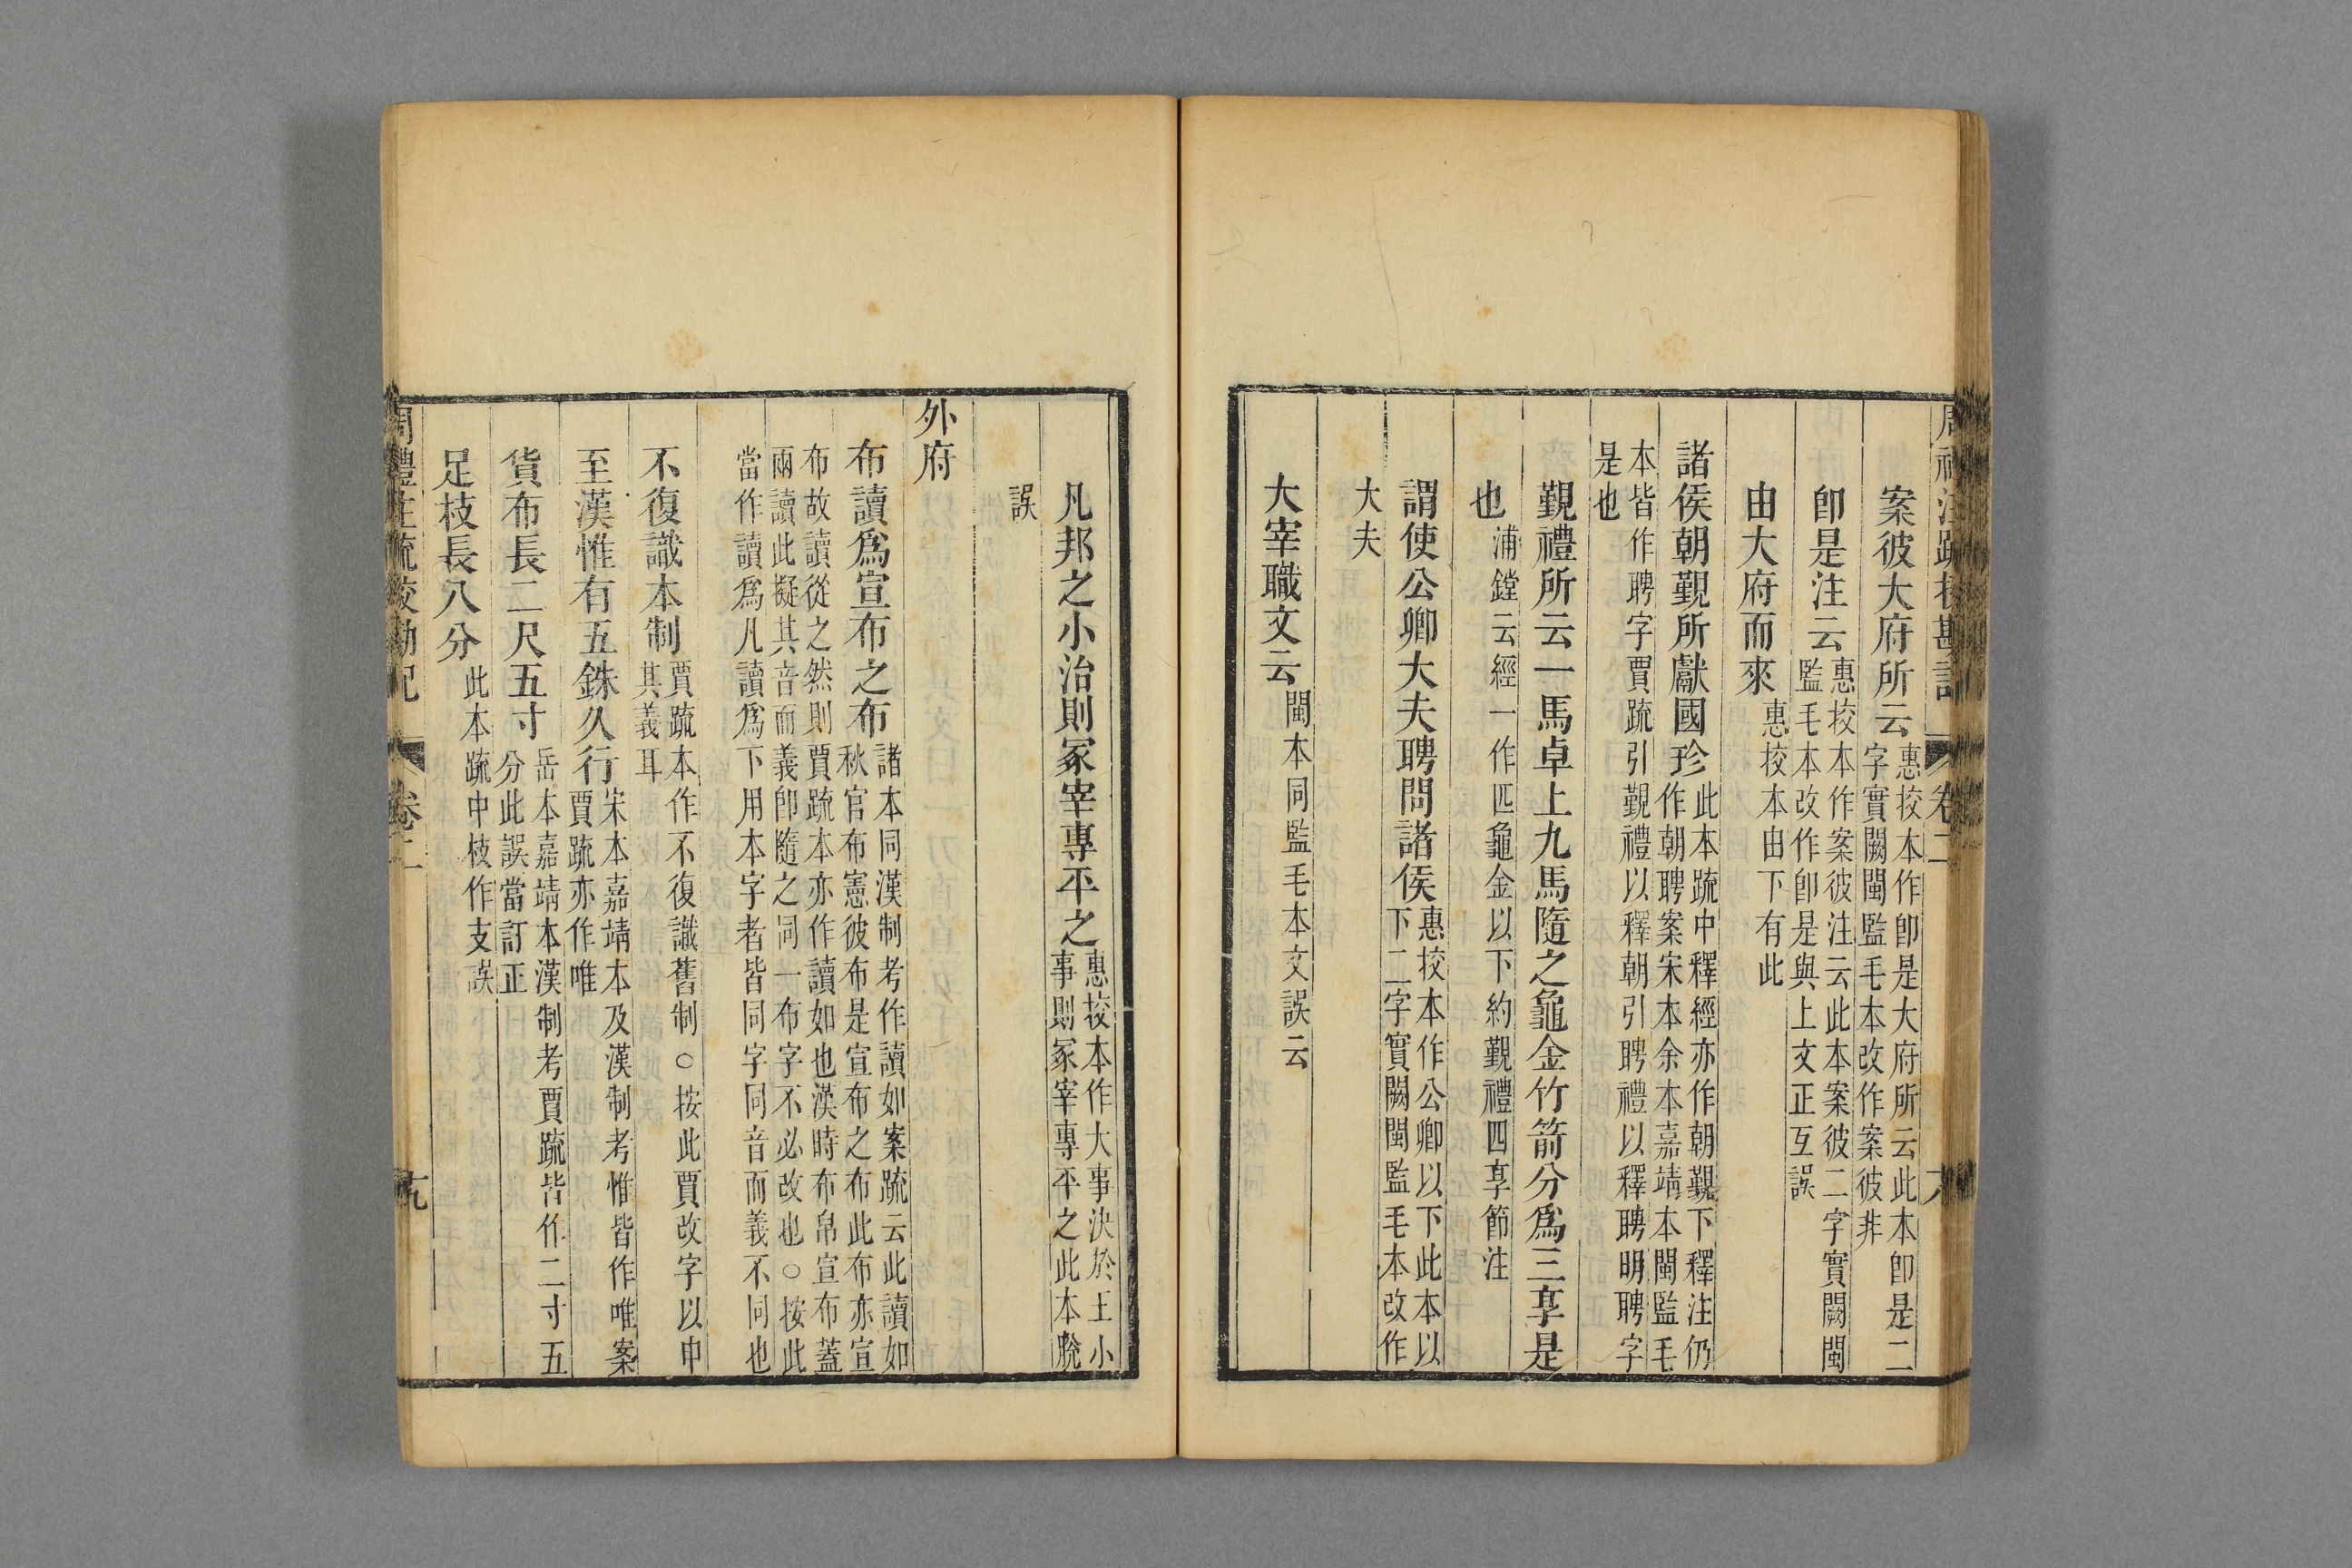 周禮注疏挍勘記 卷二
案彼大府所云惠挍本作卽是大府所云此本卽是二
字實闕閩監毛本改作案彼非
卽是注云惠挍本作案彼注云此本案彼二字實闕閩
監毛本改作卽是與上文正互誤
由大府而來惠挍本由下有此
諸侯朝覲所獻國珍此本疏中釋經亦作朝覲下釋注仍
作朝聘案宋本余本嘉靖本閩監毛
本皆作聘字賈疏引覲禮以釋朝引聘禮以釋聘明聘字
是也
覲禮所云一馬卓上九馬隨之龜金竹箭分爲三享是
也浦鏜云經一作匹龜金以下約覲禮四享節注
謂使公卿大夫聘問諸侯惠挍本作公卿以下此本以
下二字實闕閩監毛本改作
大夫
大宰職文云閩本同監毛本文誤云
凡邦之小治則冢宰專平之惠挍本作大事決於王小
事則冢宰專平之此本脫
誤
外府
布讀爲宣布之布諸本同漢制考作讀如案疏云此讀如
秋官布憲彼布是宣布之布此布亦宣
布故讀從之然則賈疏本亦作讀如也漢時布帛宣布蓋
兩讀此擬其音而義卽隨之同一布字不必改也○按此
當作讀爲凡讀爲下用本字者皆同字同音而義不同也
不復識本制賈疏本作不復識舊制○按此賈改字以申
其義耳
至漢惟有五銖久行宋本嘉靖本及漢制考惟皆作唯案
賈疏亦作唯
貨布長二尺五寸岳本嘉靖本漢制考賈疏皆作二寸五
分此誤當訂正
足枝長八分此本疏中枝作支誤
周禮注疏挍勘記 卷二 十九